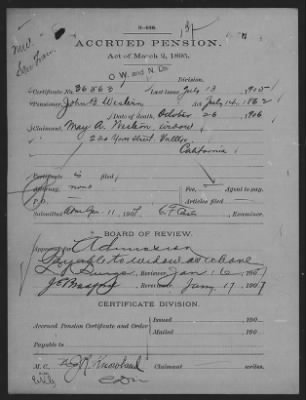 3-446.
ACCRUED PENSION.
Act of March 2, 1895.
O. W. and N. Div.
Division.
Certificate No. 36868 Last issue July 13 1905
Pensioner, John B. Western Act July 14, 1862
Date of death, October 26 1906
Claimant, May A. Western widow
Street, Vallejo
California
Certificate is filed
Attorney, none Fee, Agent to pay.
P. O. Articles filed
Submitted Jan. 11, 1907, Examiner.
BOARD OF REVIEW.
Approved Admission
Payable to widow as above
Reviewer Jan 16 1907
Reviewer Jany 17 1907
CERTIFICATE DIVISION.
Accrued Pension Certificate and Order
Issued 190
Mailed 190
Payable to
M. C. J R Knowland Claimant writes.